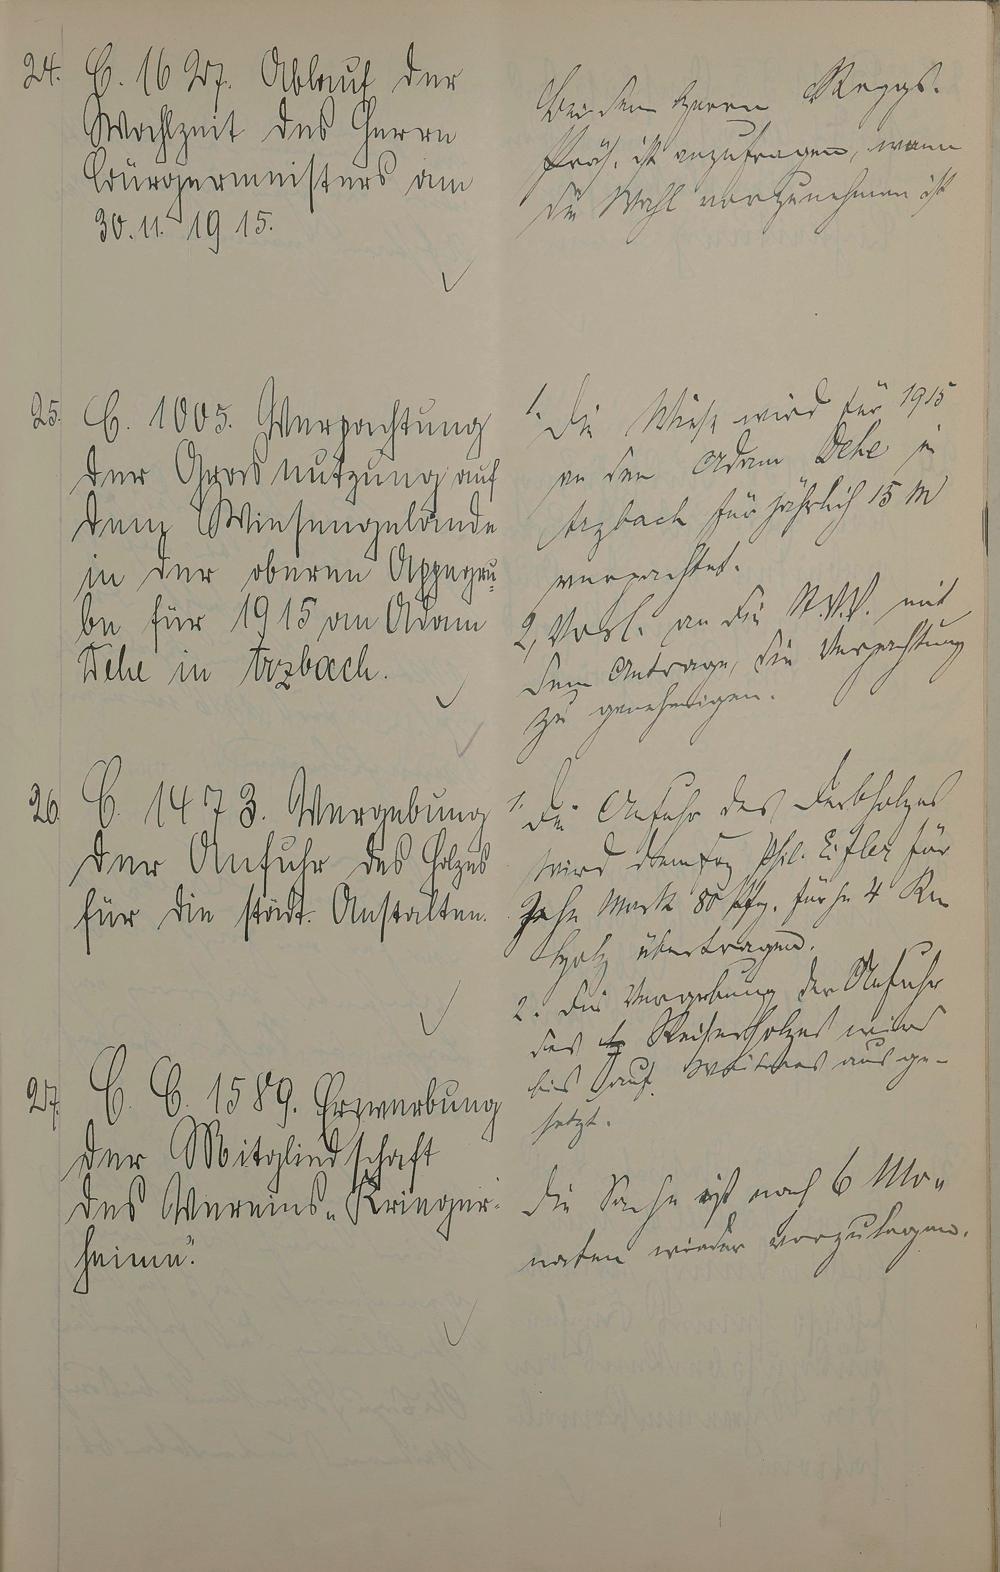 24. C. 1627. Ablauf der
Wahlzeit des Herrn
Bürgermeisters am
30.11.1915.
Bei dem Herrn Reggs.
Präs. ist anzufragen, wann
die Wahl vorzunehmen ist
25. C. 1005. Verpachtung
der Grasnutzung auf
dem Wiesengelände
in der oberen Appegru-
be für 1915 an Adam
Dehe in Arzbach.
1. Die Wiese wird für 1915
an den Adam Dehe in
Arzbach für jährlich 15 M
verpachtet.
2, Vorl. an die St.V.V. mit
dem Antrage, die Verpachtung
zu genehmigen.
26. C. 1473. Vergebung
der Anfuhr des Holzes
für die städt. Anstalten.
1. Die Anfuhr des Derbholzes
wird dem Phil. Eifler für
Zehn Mark 80 Pfg. für je 4 Rm
Holz übertragen.
2. Die Vergebung der Anfuhr
des Reiserholzes wird
bis auf Weiteres ausge-
setzt.
27. C. C. 1589. Erwerbung
der Mitgliedschaft
des Vereins „Krieger-
heime".
Die Sache ist nach 6 Mo-
naten wieder vorzulegen.